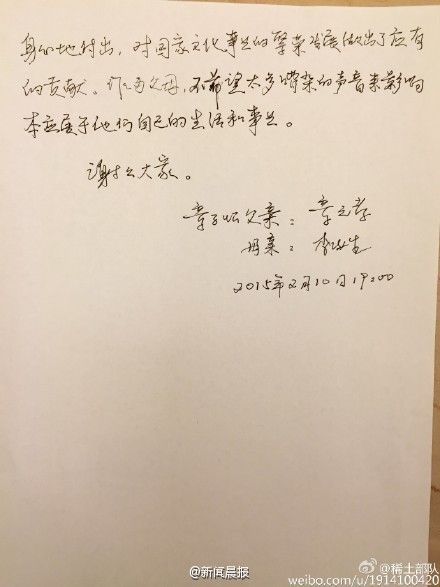 身心地付出，对国家文化事业的繁荣发展做出了应有
的贡献。作为父母，不希望太多嘈杂的声音来影响
本应属于他们自己的生活和事业。
谢谢大家。
章子怡父亲：章元孝
母亲：李涿生
2015年2月10日19:00
@新闻晨报
@稀土部队
weibo.com/u/1914100420